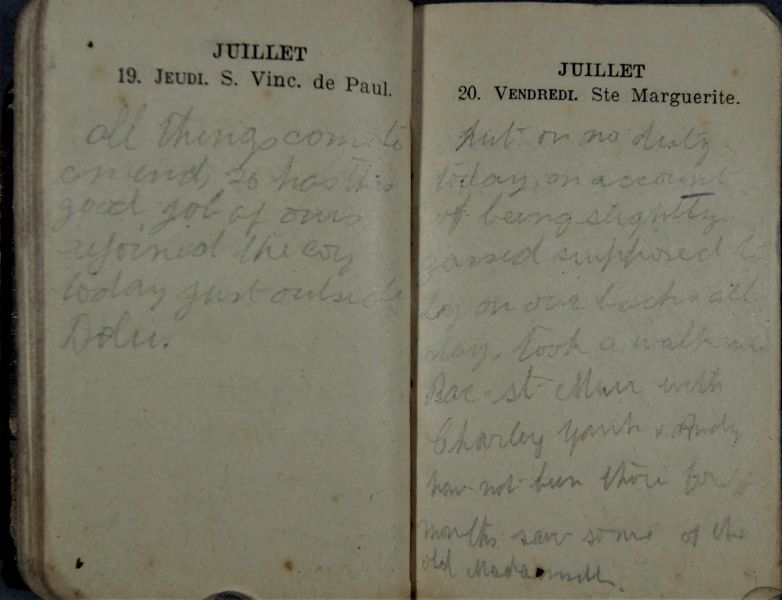 JUILLET
19. JEUDI. S. Vinc. de Paul.
all things come to
an end, so has this
good job of ours
rejoined the coy
today just outside
JUILLET
20. VENDREDI. Ste Marguerite.
put on no duty
today, on account
of being slightly
gassed supposed to
lay on our backs all
day, took a walk
Bac-st-Maur with
Charley & Andy
have not been there for
months saw some of the
old